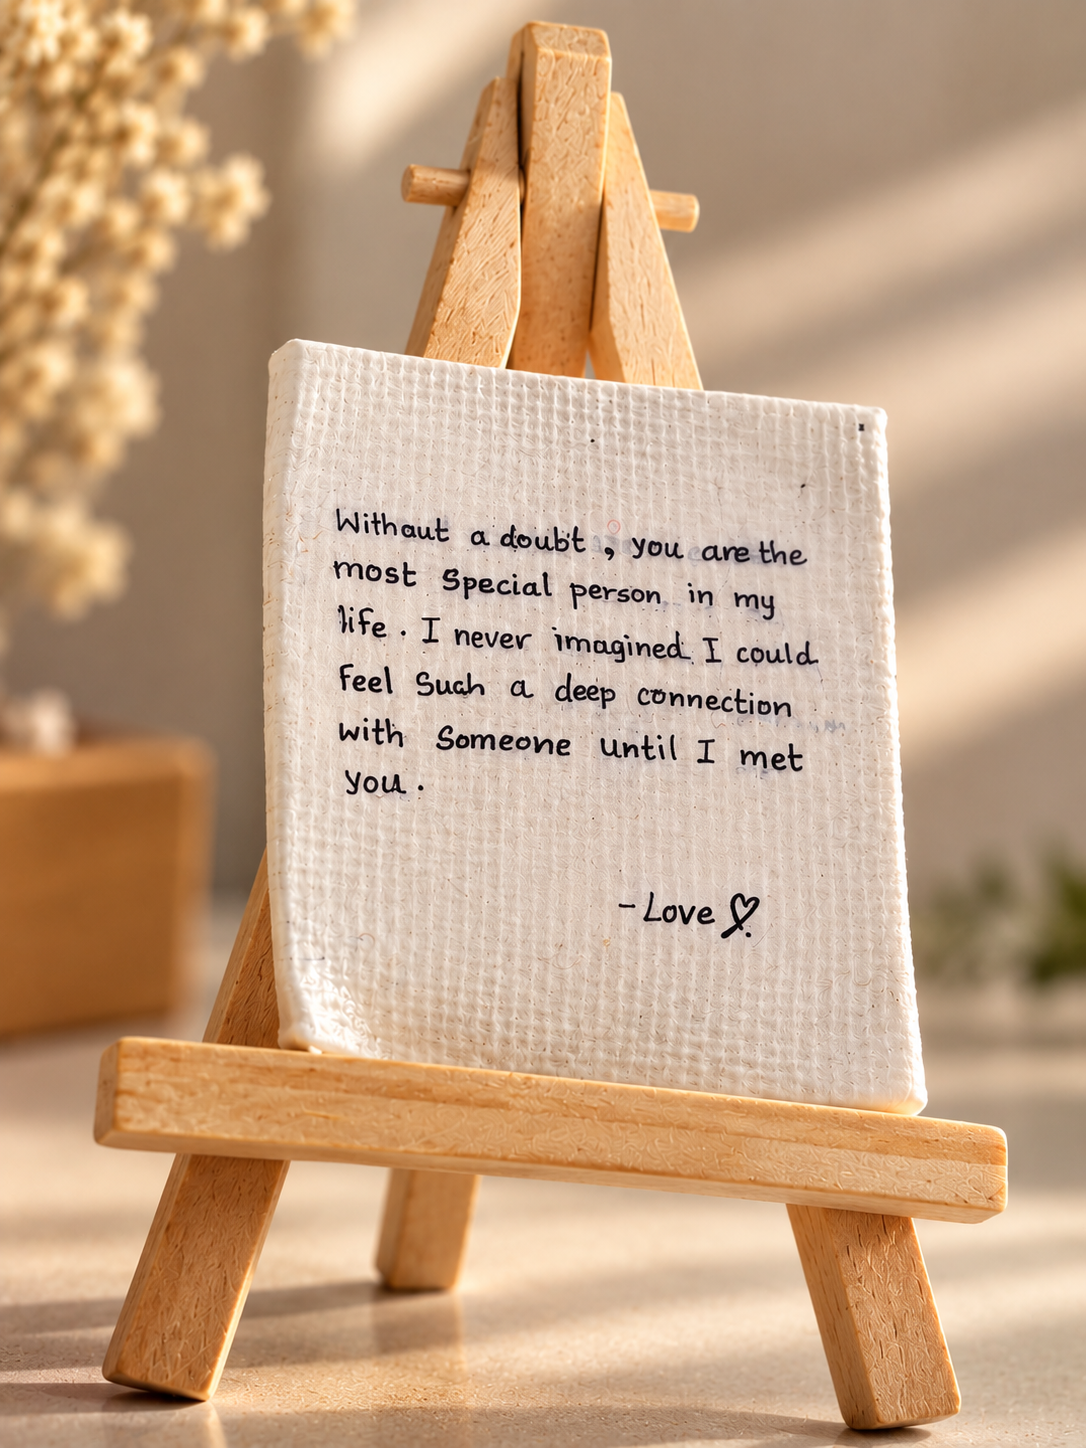 Without a doubt , you are the
most Special person in my
life . I never imagined I could
feel Such a deep connection
with Someone until I met
you .
- Love